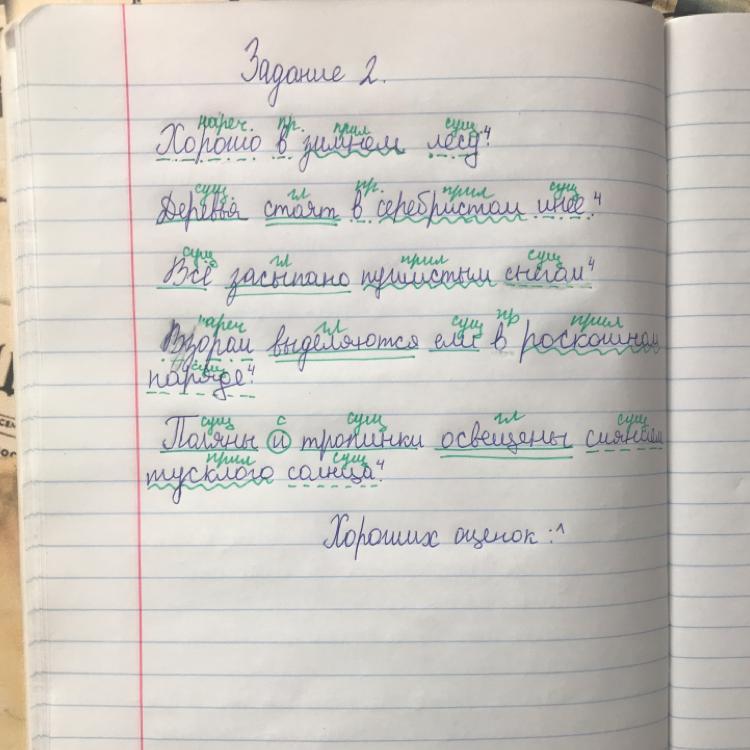 Задание 2.
нареч. пр. прил сущ
Хорошо в зимнем лесу.⁴
сущ гл пр. прил сущ
Деревья стоят в серебристом инее.⁴
сущ гл прил сущ
Всё засыпано пушистым снегом⁴
нареч гл сущ пр прил
выделяются ели в роскошном
сущ
наряде.⁴
сущ с сущ гл сущ
Поляны и тропинки освещены сиянием
прил сущ
тусклого солнца.⁴
Хороших оценок :^